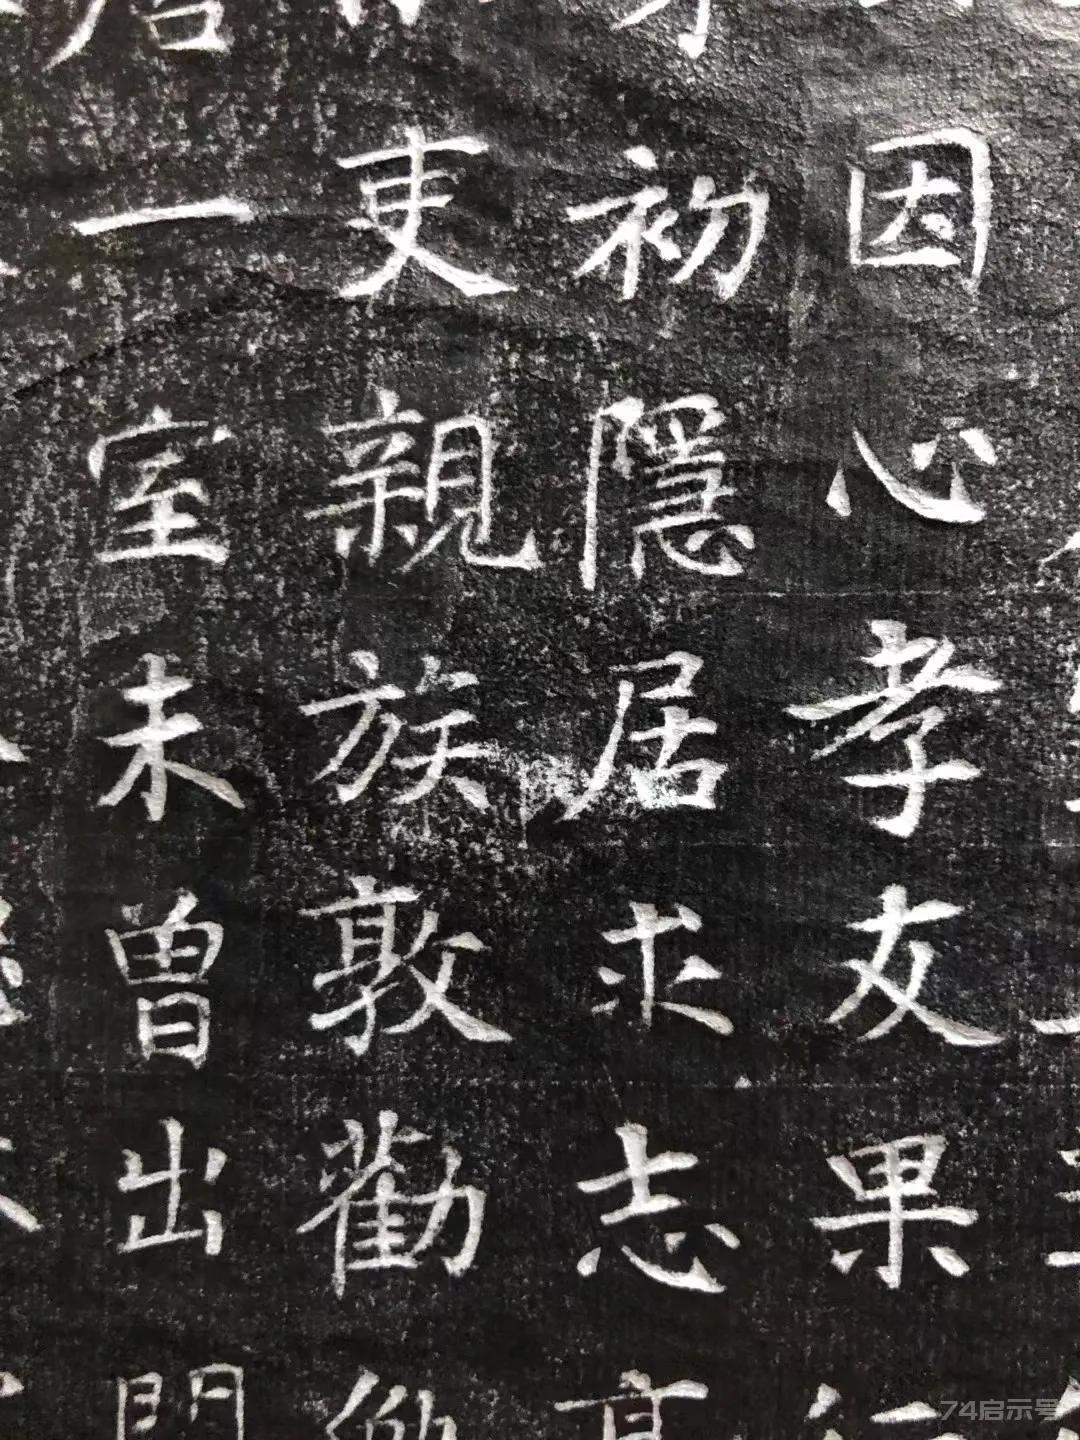 因心孝友果行
初隱居求志高
吏親族敦勸
一室未曾出門
74启示号